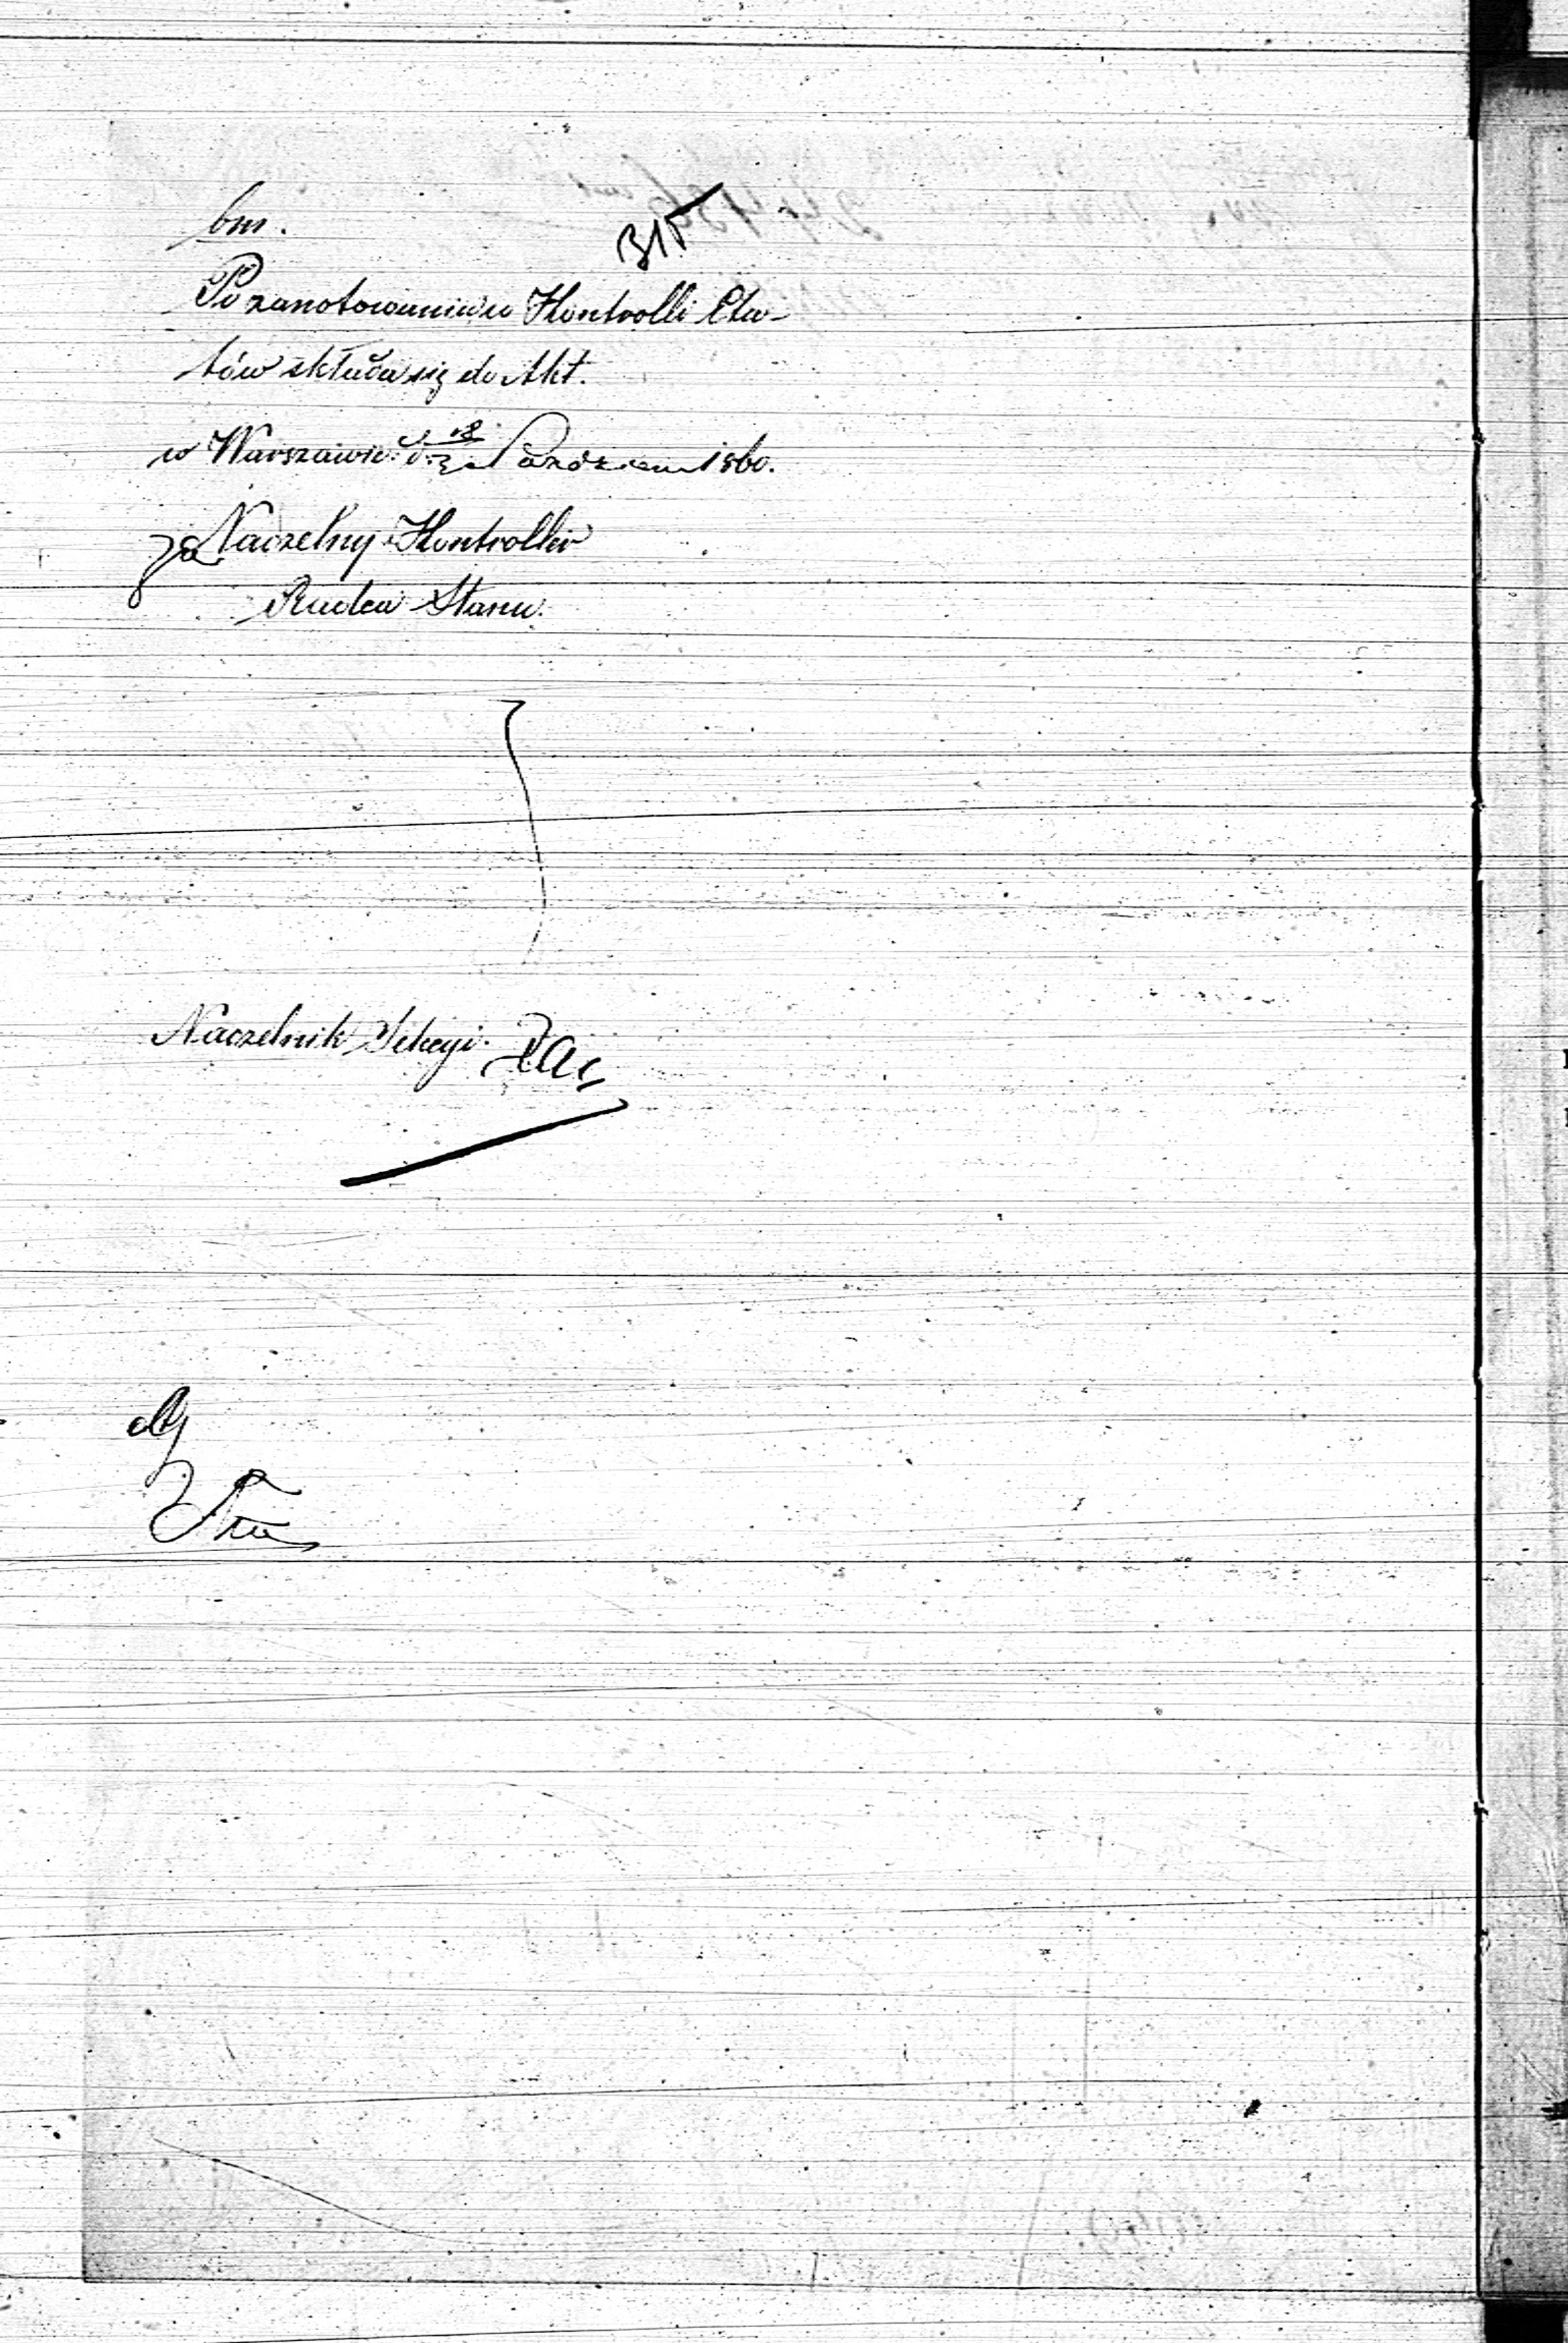 bm.
315
Po zanotowaniu w Kontrolli Eta-
tów składa się do Akt.
w Warszawie d. Paździer 1860.
za Naczelny Kontroller
Radca Stanu.
Naczelnik Sekcyi.